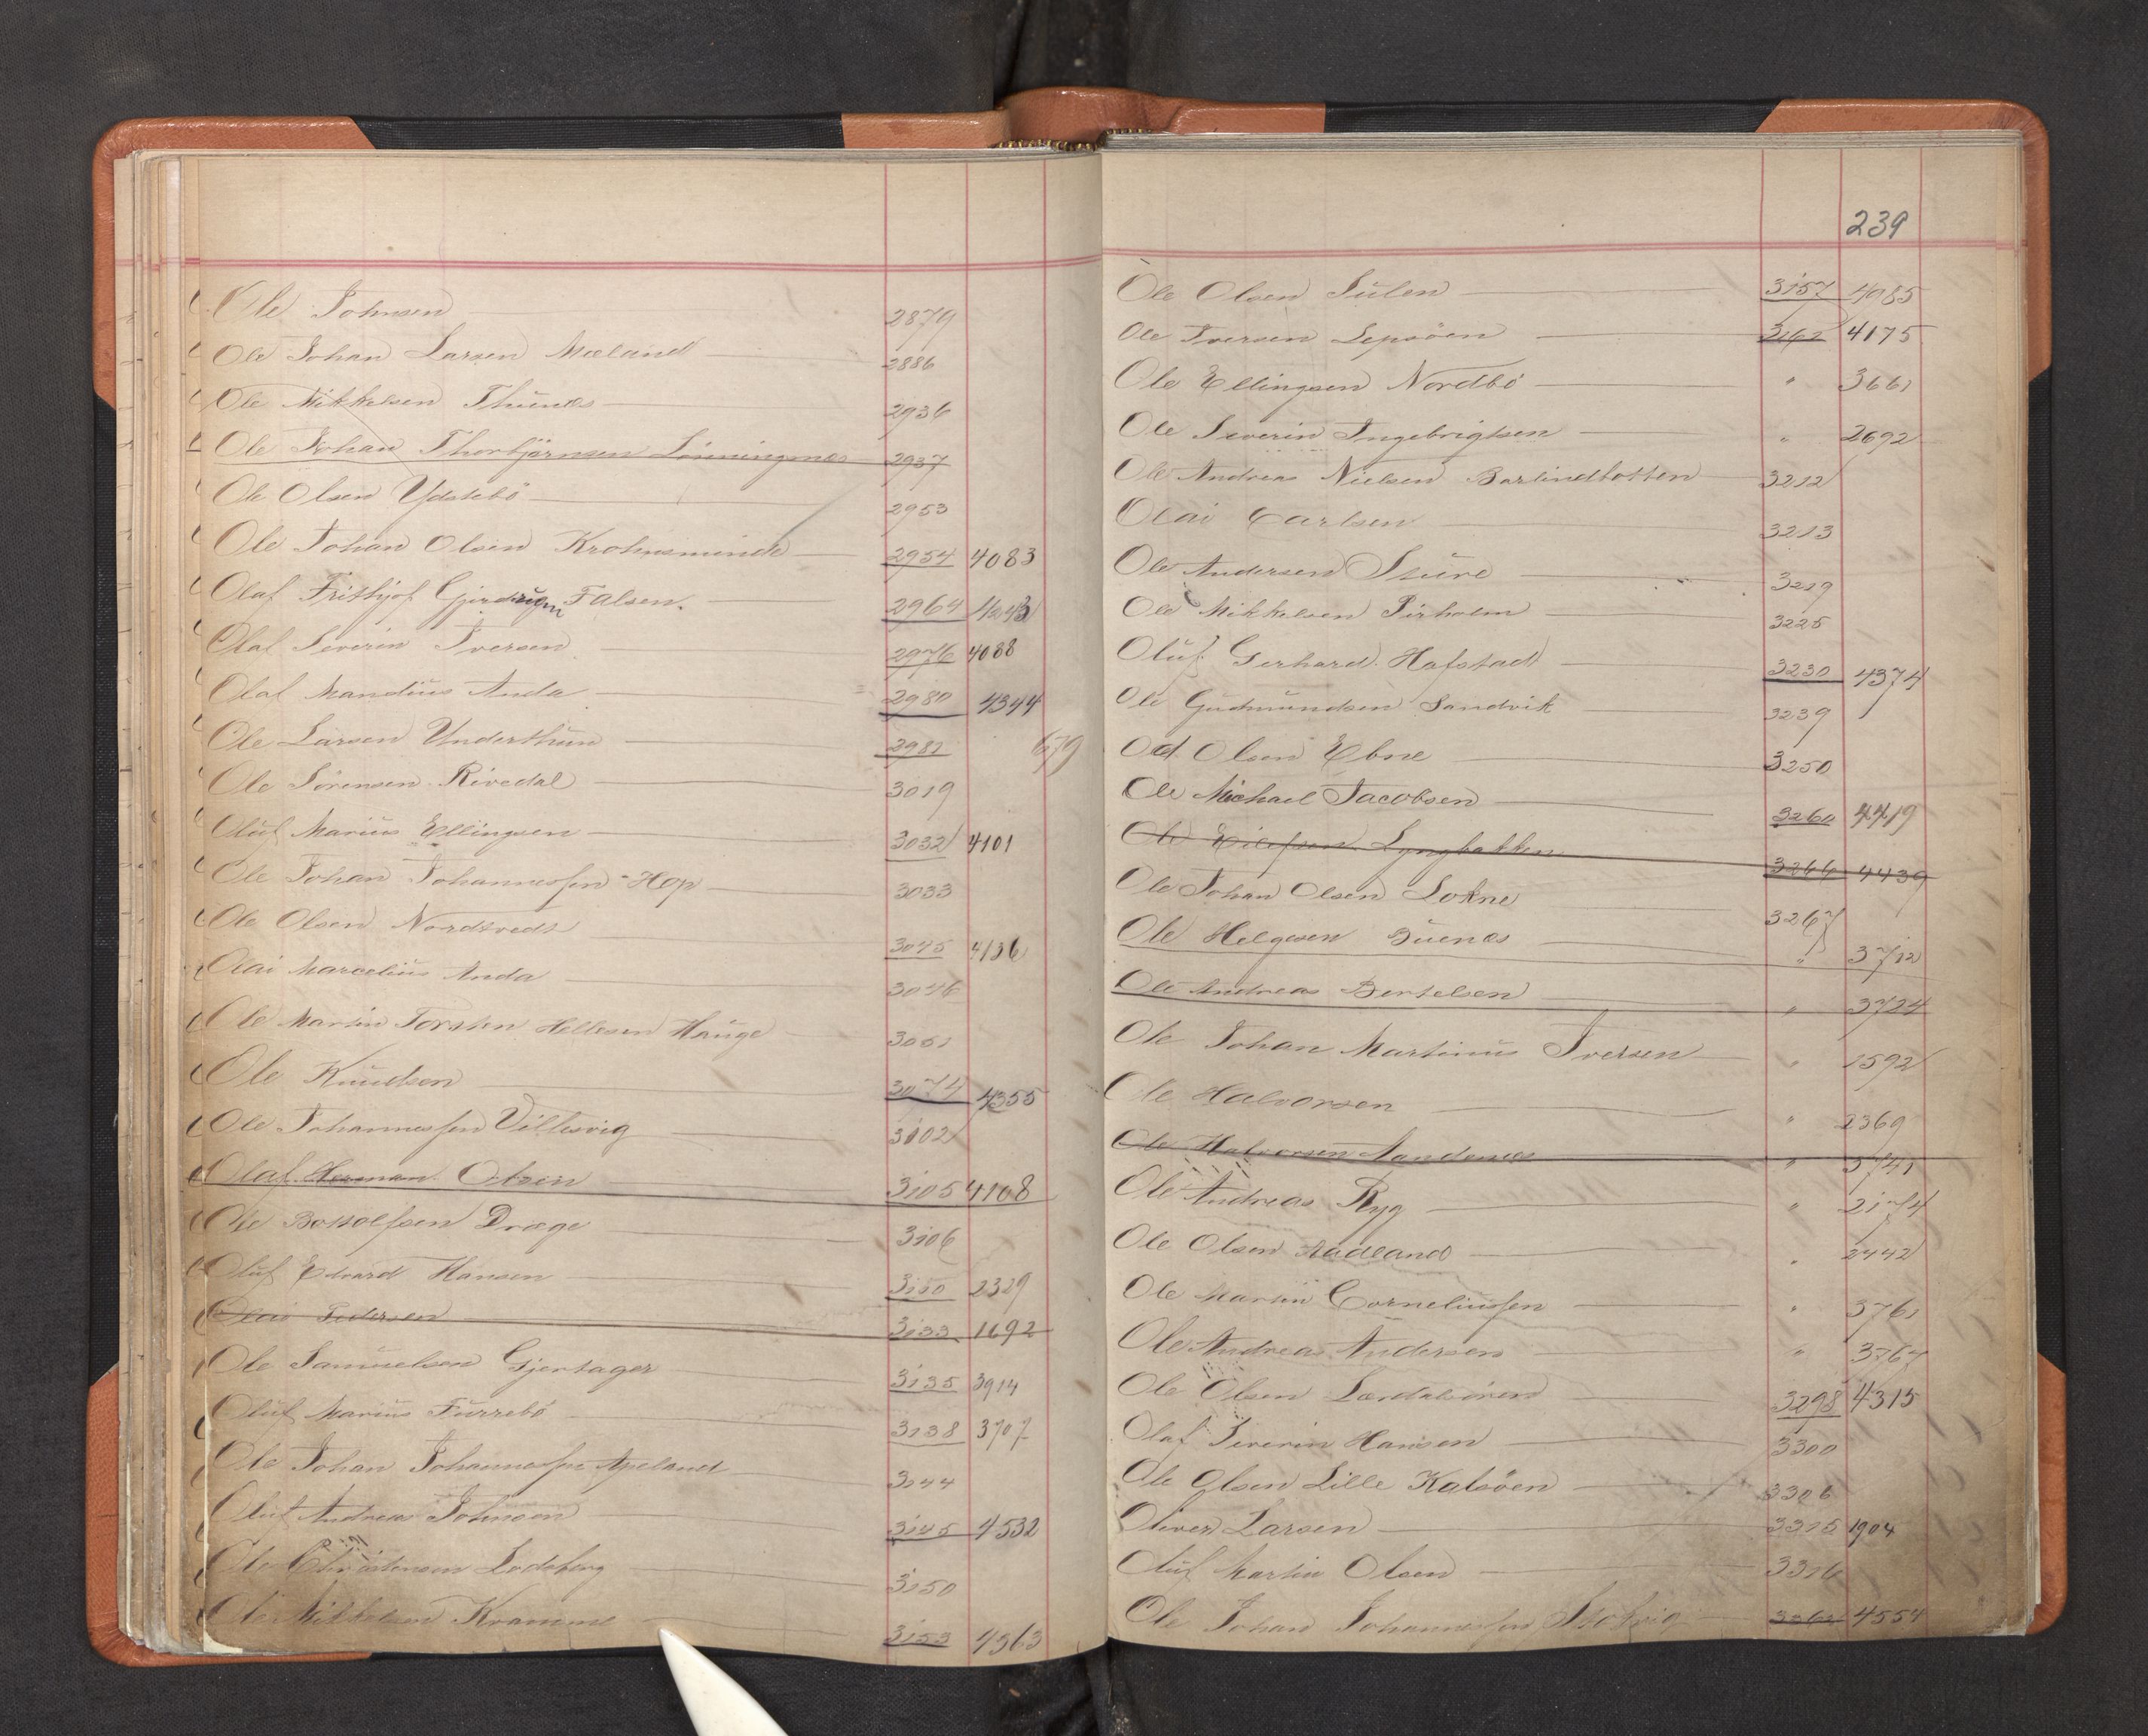 Ole Johnsen 2879
Ole Johan Larsen Mæland 2886
Ole Mikkelsen Thunes 2936
Ole Johan Thorbjörnsen Lönningnæs 2937
Ole Olsen Ydstebö 2953
Ole Johan Olsen Krohnsminde 2954 4083
Olaf Frithjof Gjerdrum Falsen. 2964
Olaf Severin Iversen 2976 4088
Olaf Mandius Anda 2980 4344
Ole Larsen Underthun 2981 679
Ole Sörensen Rivedal 3019
Oluf Marius Ellingsen 3032 4101
Ole Johan Johannessen Hop 3033
Ole Olsen Nordtvedt 3045 4136
Olai Marcelius Anda 3046
Ole Martin Torsten Hellesen Hauge 3061
Ole Knudsen 3074 4355
Ole Johannessen Villisvig 3102
Olaf Herman Olsen 3105 4108
Ole Bottolfsen Drage 3106
Oluf Edvard Hansen 3110 2329
Olai Pedersen 3133 1692
Ole Samuelsen Gjertager 3135 3914
Oluf Marius Furrebö 3138 3707
Ole Johan Johannessen Apeland 3144
Oluf Andreas Johnsen 3145 4532
Ole Christensen 3150
Ole Mikkelsen Kramme 3153 4363
239
Ole Olsen Sulen 3157 4085
Ole Iversen Lepsöen 3162 4175
Ole Ellingsen Nordbö " 3661
Ole Severin Ingebrigtsen " 2692
Ole Andreas Nielsen Barlindbotten 3212
Olai Carlsen 3213
Ole Andersen Sture 3219
Ole Mikkelsen Pirholm 3225
Oluf Gerhard Hafstad 3230 4374
Ole Gudmundsen Sandvik 3239
Od Olsen Ebne 3250
Ole Michael Jacobsen 3260 4419
Ole Eilefsen Lyngbakken 3266 4439
Ole Johan Olsen Lokne 3267
Ole Helgesen Buenæs " 3712
Ole Andreas Bertelsen " 3724
Ole Johan Martinus Iversen " 1592
Ole Halvorsen " 2369
Ole Halvorsen Aandenæs " 3741
Ole Andreas Ryg " 2174
Ole Olsen Aadland " 2442
Ole Martin Corneliussen " 3761
Ole Andreas Andersen " 3767
Ole Olsen Lærdalsören 3298 4315
Olaf Severin Hansen 3300
Ole Olsen Lille Kalsöen 3306
Oliver Larsen 3315 1904
Oluf Martin Olsen 3316
Ole Johan Johannessen 4554